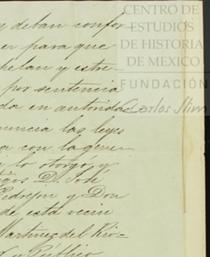 CENTRO DE
ESTUDIOS
DE HISTORIA
DE MEXICO
FUNDACIÓN
Carlos Slim
y deban confor
en para que
helan y estre
por sentencia
da en autoridad
nuncia las leyes
a con la gener
y lo otorgó, y
D. José
Pedrejon y Don
de esta vecin
Martinez del Rio
y Público